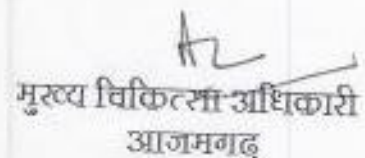 मुख्य चिकित्सा अधिकारी
आजमगढ़